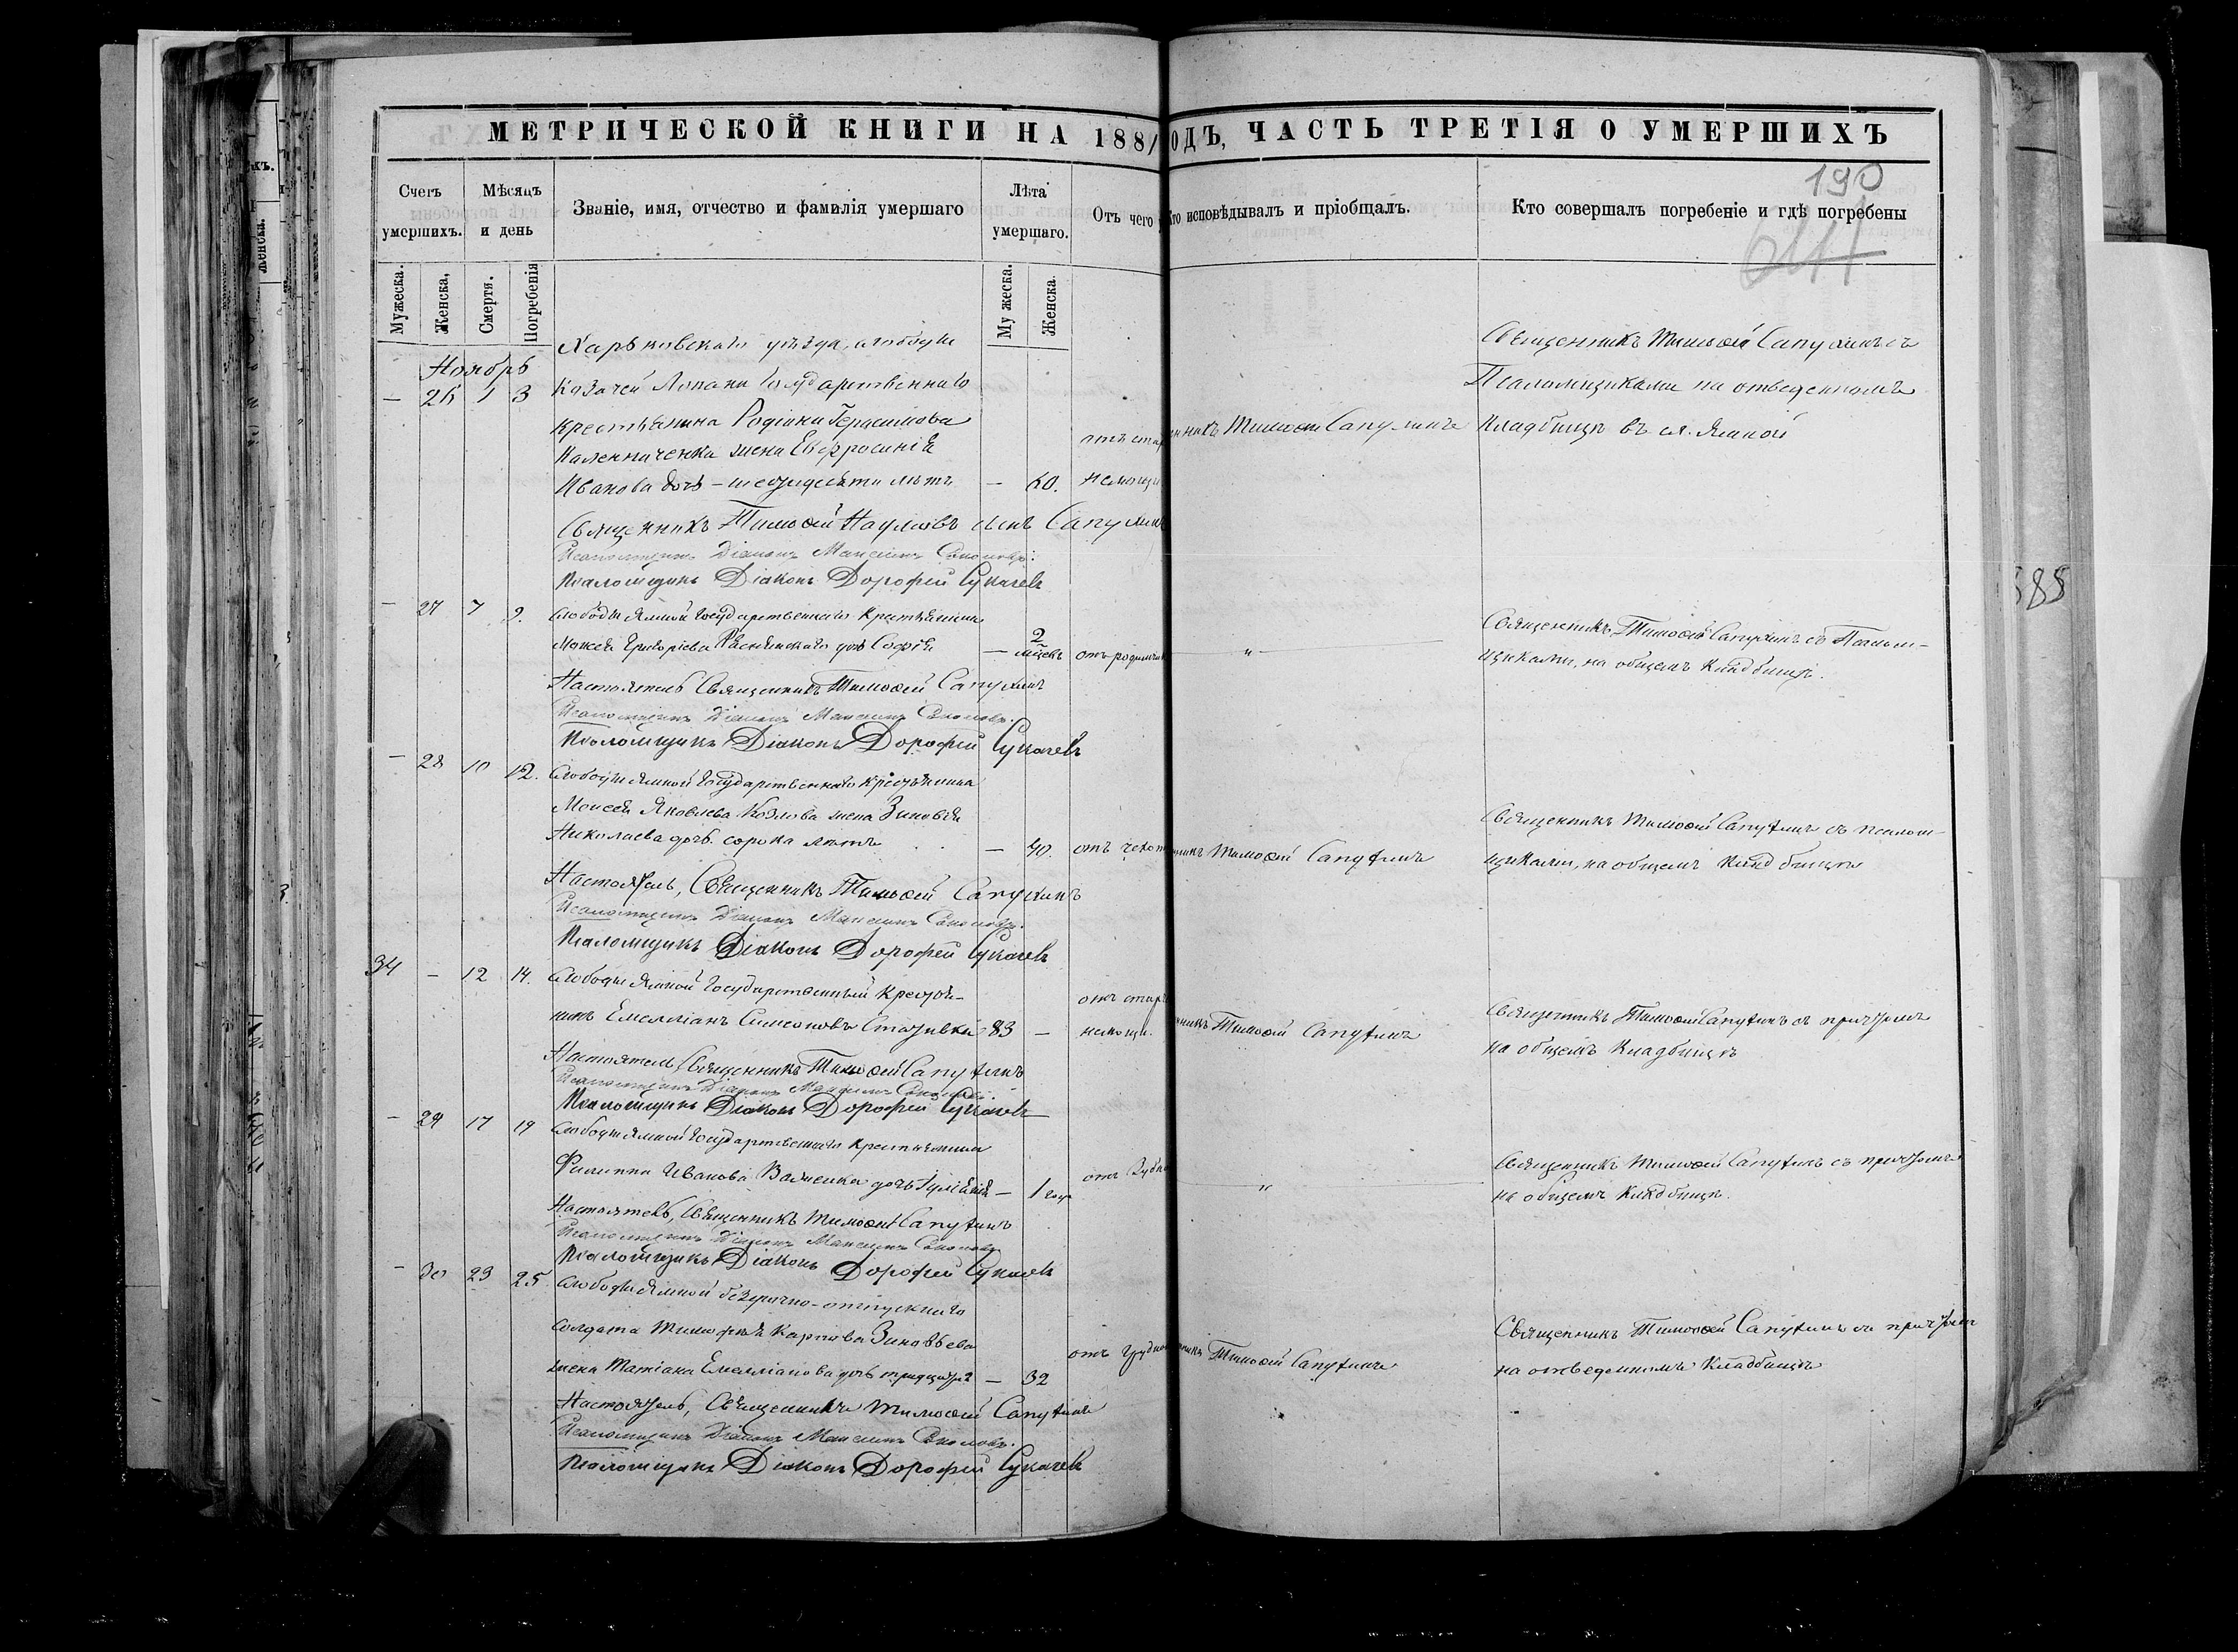 МЕТРИЧЕСКОЙ КНИГИ НА 188/ ОДЪ, ЧАСТЬ ТРЕТІЯ О УМЕРШИХЪ
190
Счетъ умершихъ.
Мѣсяцъ и день
Званіе, имя, отчество и фамилія умершаго
Лѣта умершаго.
Отъ чего
Кто исповѣдывалъ и пріобщалъ.
Кто совершалъ погребеніе и гдѣ погребены
Мужеска.
Женска,
Смерти.
Погребенія
Му жеска.
Женска.
Ноябрь
Харьковскаго уѣзда, слободы
— 26 1 3 Казачей Лопани Государственнаго
крестьянина Родіона Герасимова
жена Евфросинія
Иванова дочь – шестидесяти лѣтъ — 60.
Священникъ Тимоѳей Сапухинъ
Священникъ Тимоѳей Сапухинъ съ
Псаломщиками на отведенномъ
кладбищѣ въ сл. Ямной
Священникъ Тимоѳей Наумовъ сынъ Сапухинъ
Псаломщикъ Діаконъ Максимъ
Псаломщикъ Діаконъ Дорофей Сукачевъ
— 27 7 9. Слободы Ямной Государственнаго Крестьянина
Моисея Григоріева дочь Софія — 2 мѣсяц. отъ родимчик
"
Священникъ Тимоѳей Сапухинъ съ Псалом-
щиками, на общемъ кладбищѣ.
Настоятель Священникъ Тимоѳей Сапухинъ
Псаломщикъ Діаконъ Максимъ
Псаломщикъ Діаконъ Дорофей Сукачевъ
— 28 10 12. Слободы Ямной Государственнаго Крестьянина
Моисея Яковлева Козлова жена Зиновія
Николаева дочь. сорока лѣтъ — 40. отъ чахот
Тимоѳей Сапухинъ
Священникъ Тимоѳей Сапухинъ съ псалом-
щиками, на общемъ кладбищѣ
Настоятель, Священникъ Тимоѳей Сапухинъ
Псаломщикъ Діаконъ Максимъ
Псаломщикъ Діаконъ Дорофей Сукачевъ
34 — 12 14. Слободы Ямной Государственный Крестья-
нинъ Емелліанъ Симеоновъ 83 —
немощи.
Тимоѳей Сапухинъ
Священникъ Тимоѳей Сапухинъ съ причтомъ
на общемъ кладбищѣ
Настоятель, Священникъ Тимоѳей Сапухинъ
Псаломщикъ Діаконъ Максимъ
Псаломщикъ Діаконъ Дорофей Сукачевъ
— 29 17 19 Слободы Ямной Государственнаго Крестьянина
Филиппа Иванова дочь Іуліанія — 1 годъ
"
Священникъ Тимоѳей Сапухинъ съ причтомъ
на общемъ кладбищѣ.
Настоятель, Священникъ Тимоѳей Сапухинъ
Псаломщикъ Діаконъ Максимъ
Псаломщикъ Діаконъ Дорофей Сукачевъ
— 30 23 25. Слободы Ямной безсрочно-отпускнаго
солдата Тимофея Карпова Зиновьева
жена Татіана Емелліанова дочь тридцати 2 — 32
Тимоѳей Сапухинъ
Священникъ Тимоѳей Сапухинъ съ причтомъ
на отведенномъ кладбищѣ
Настоятель, Священникъ Тимоѳей Сапухинъ
Псаломщикъ Діаконъ Максимъ
Псаломщикъ Діаконъ Дорофей Сукачевъ